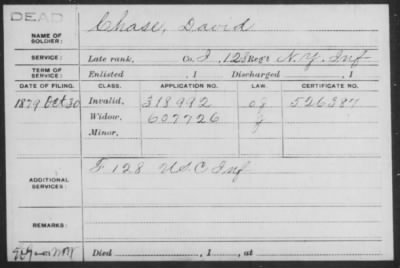 DEAD
NAME OF SOLDIER: Chase, David
SERVICE: Late rank, Co. I, 128 Reg't N.Y. Inf
TERM OF SERVICE: Enlisted , 1 Discharged , 1
DATE OF FILING. CLASS. APPLICATION NO. LAW. CERTIFICATE NO.
1879 Oct 30 Invalid, 318992 526387
Widow, 607726
Minor,
ADDITIONAL SERVICES: F 128 U.S.C. Inf
REMARKS:
Died , 1 , at